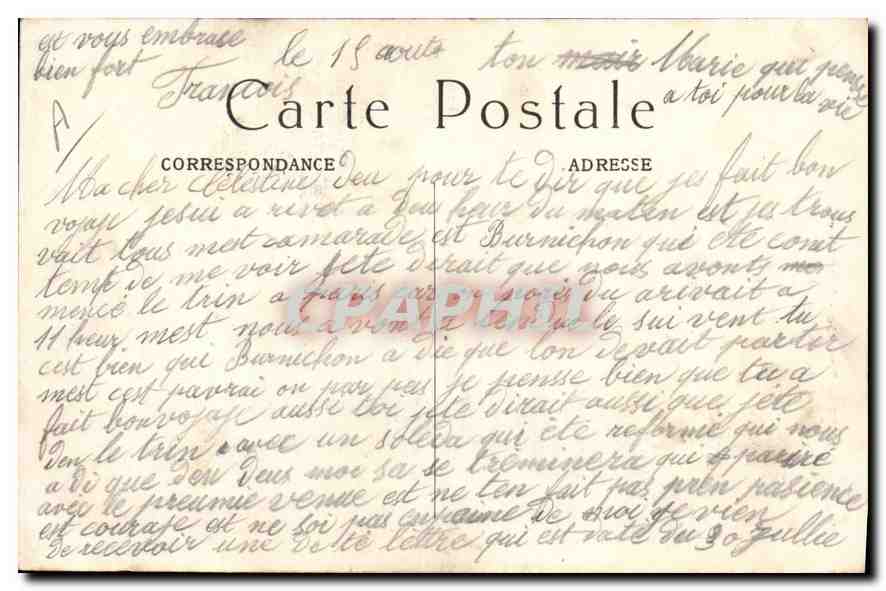 est vous embrase
bien fort
François
le 15 aout
ton Marie qui pensse
a toi pour la
vie
Carte Postale
CORRESPONDANCE
ADRESSE
Ma cher Célestine Deu pour te dir que jes fait bon
vojaje jesui a rivet a Deu heur du maten est jes trous
vait tous mest camarade est Burnichon qui été contt
temt de me voir jete dirait que nous avonts
mencé le trin a Paris du arivait a
11 heur mest nous avont sui vent tu
cest bien qui Burnichon a die que lon devait partir
mest cest pavrai on par pas je pensse bien que tu a
fait bon vojaje aussi toi jete dirait aussi que jété
den le trin avec un soleda qui été reformé qui nous
a di que deu Deus moi sa se treminera qui
avec le preumie venue est ne ten fait pas pren pasience
est couraje est ne soi pas en de moi je vien
de recevoir une de té lettre qui est daté du 30 Jullie
CPAPHIL